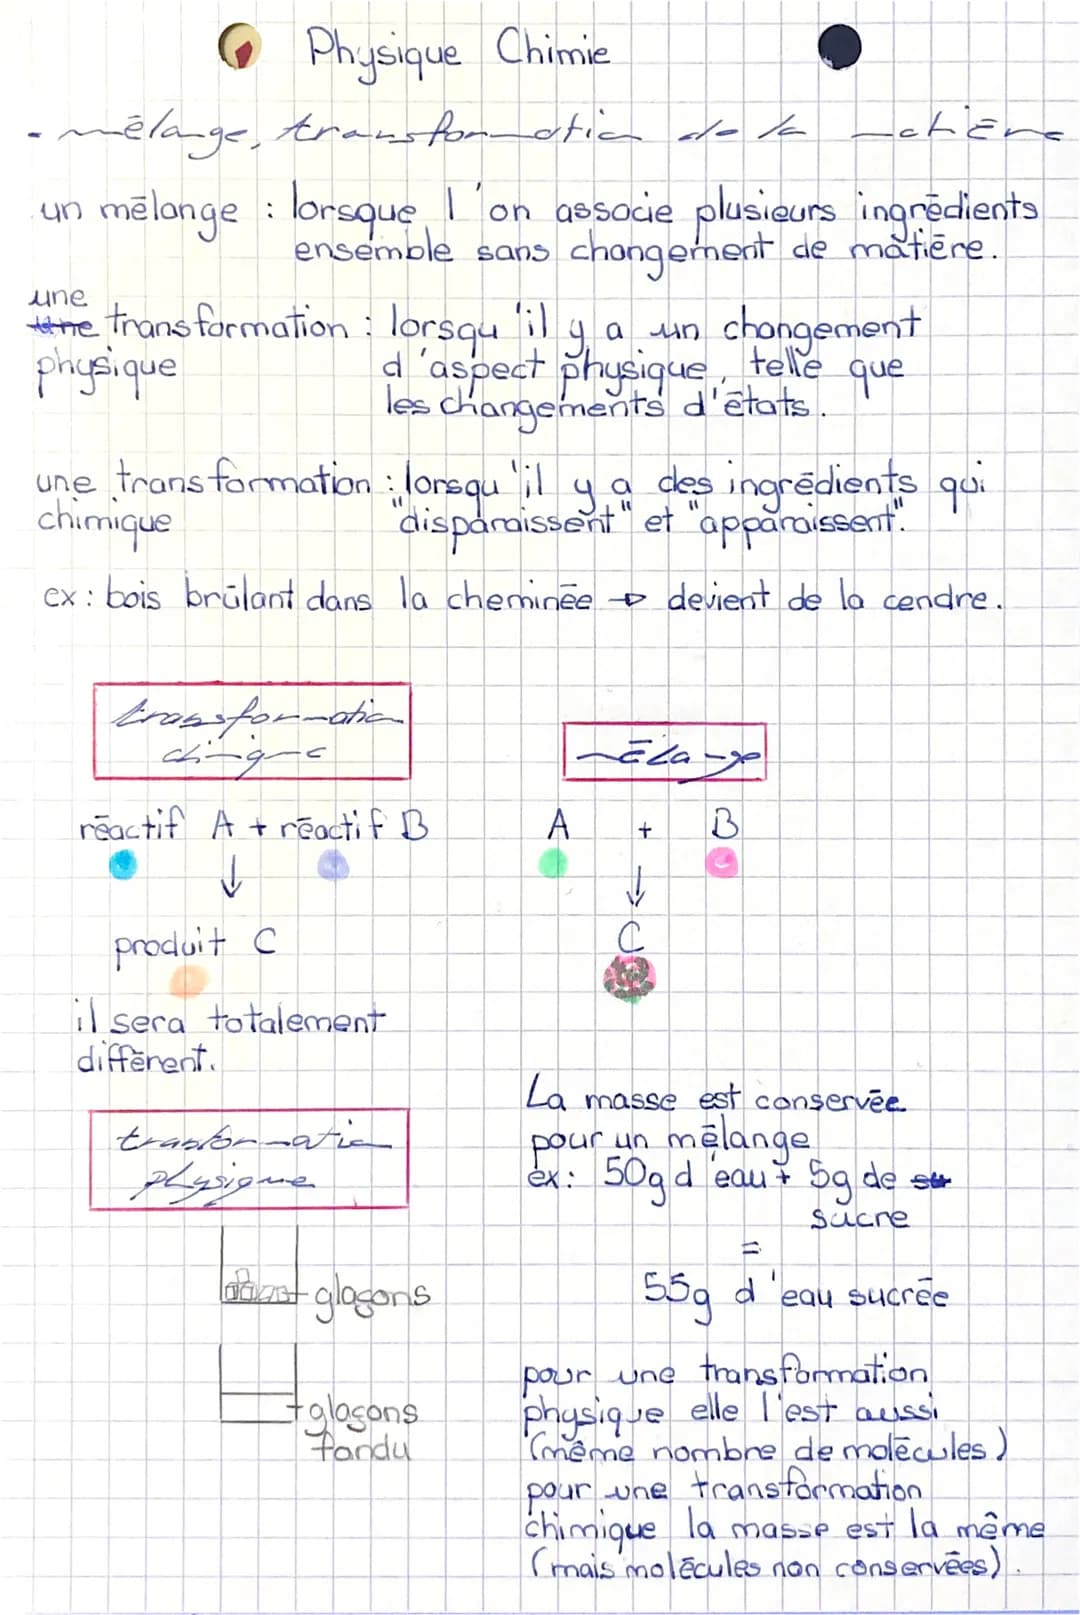 Physique Chimie
- mélange, transformation de la matière
un mélange : lorsque l'on associe plusieurs ingrédients
ensemble sans changement de matière.
une
transformation : lorsqu'il y a un changement
physique d'aspect physique, telle que
les changements d'états.
une transformation : lorsqu'il y a des ingrédients qui
chimique "disparaissent" et "apparaissent".
ex : bois brûlant dans la cheminée → devient de la cendre.
transformation
chimique
mélange
réactif A + réactif B
↓
produit C
il sera totalement
différent.
A + B
↓
C
trasformation
physique
glaçons
glaçons
fandu
La masse est conservée
pour un mélange
ex : 50g d'eau + 5g de
sucre
=
55g d'eau sucrée
pour une transformation
physique elle l'est aussi
(même nombre de molécules)
pour une transformation
chimique la masse est la même
(mais molécules non conservées).